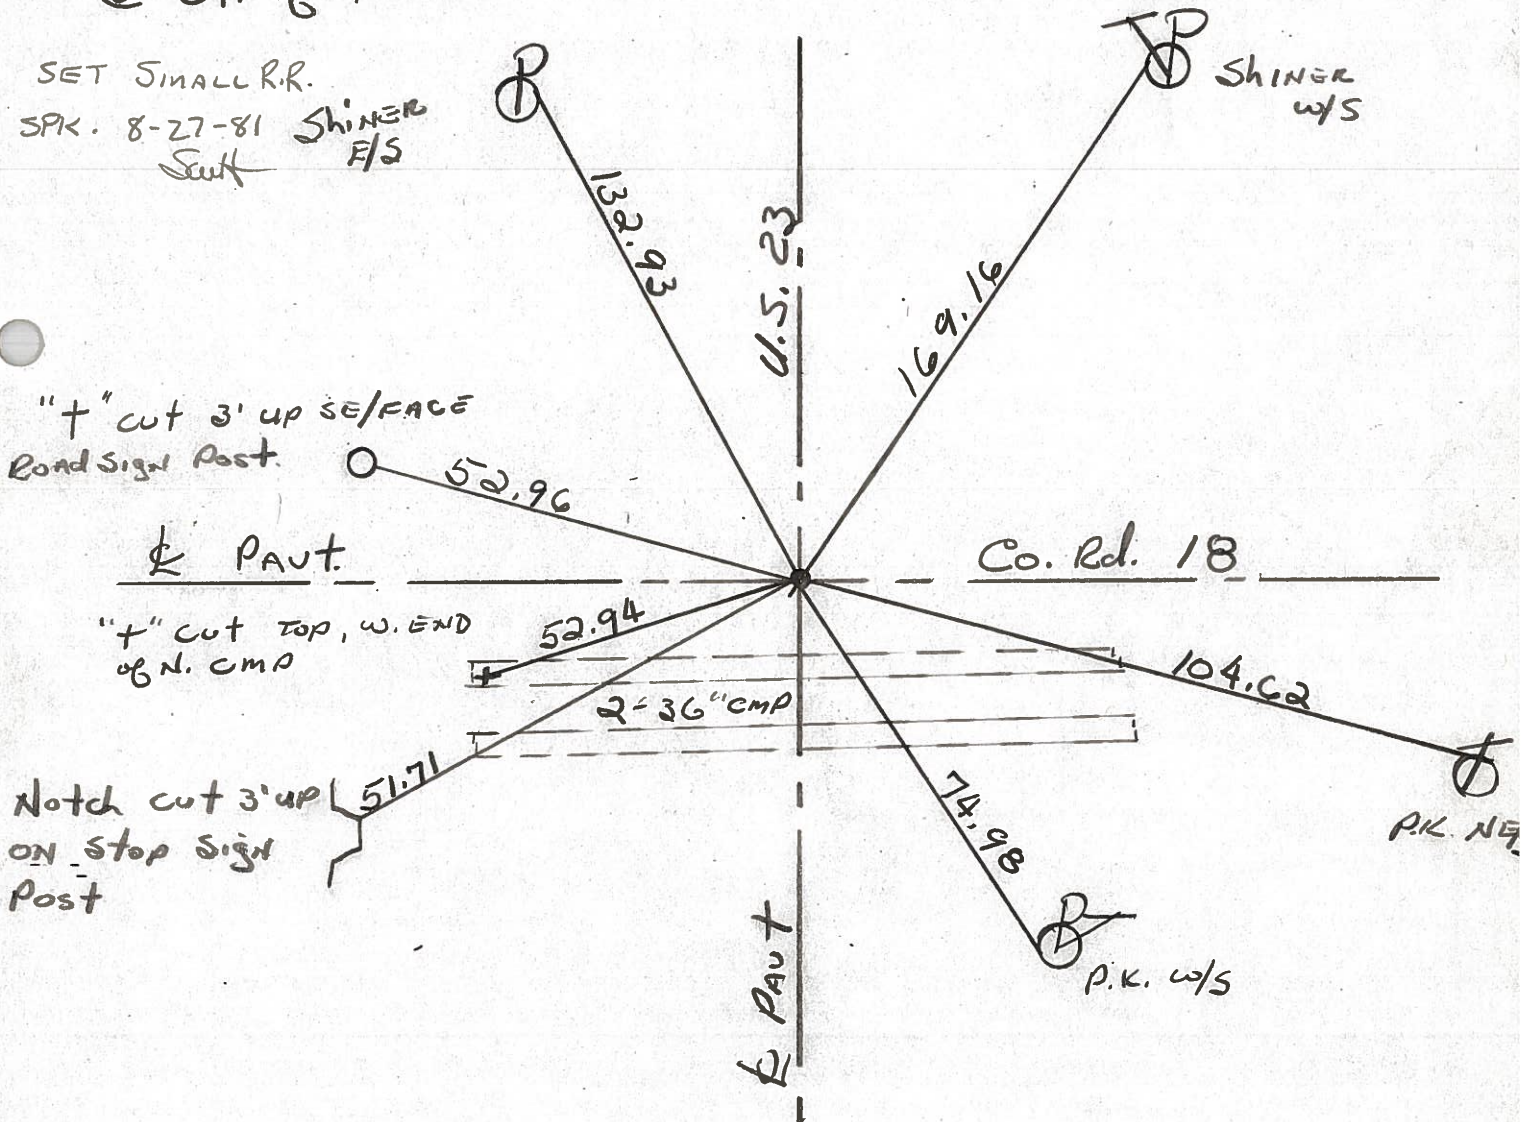 SET SMALL R.R.
SPK. 8-27-81
Scott
Shiner
E/S
P
132.93
U.S. 23
TP
Shiner
W/S
169.16
"+" cut 3' up SE/FACE
Road Sign Post.
52.96
℄ PAVT.
Co. Rd. 18
"+" cut TOP, W. END
of N. CMP
52.94
2-36" CMP
104.62
Notch cut 3' up
ON Stop Sign
Post
51.71
74.98
P
P.K. W/S
T
P.K. NE
℄ PAVT